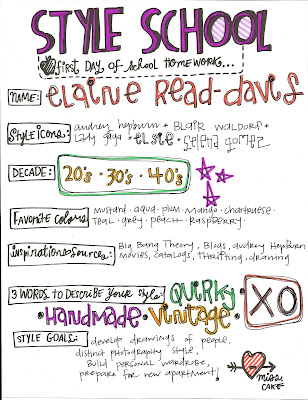 STYLE SCHOOL
first DAY of School HOMEWORK...
NAME: Elaine Read-Davis
Style icons: audrey hepburn • BLAIR WALDORF •
LADY gaga • ELSIE • Selena gomez
DECADE: 20's • 30's • 40's
Favorite Colors: mustard • aqua • plum • mango • chartruese •
Teal • grey • peach • Raspberry •
inspiration Sources: Big Bang Theory, Blogs, audrey Hepburn
movies, catalogs, thrifting, drawing
3 WORDS to DESCRIBE your style: QUIRKY •
• Handmade • Vintage •
XO
STYLE GOALS: develop drawings of people,
distinct photography style,
Build personal wardrobe,
prepare for new apartment!
miss
CAKE